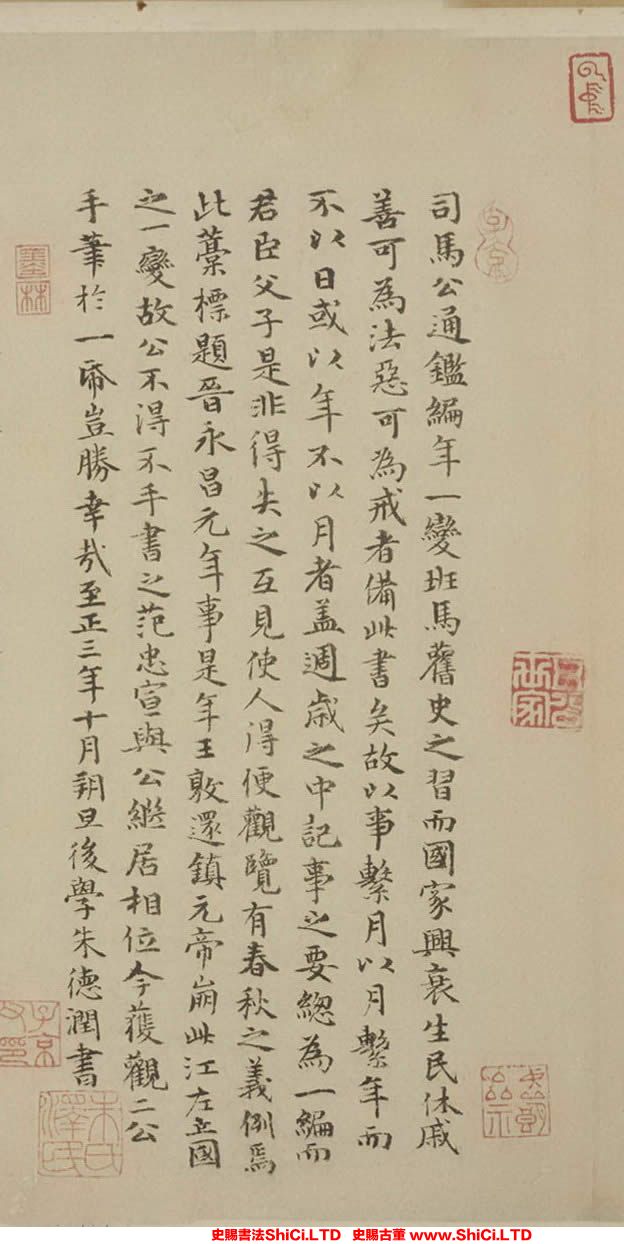 司馬公通鑑編年一變班馬舊史之習而國家興衰生民休戚
善可為法惡可為戒者備此書矣故以事繫月以月繫年而
不以日或以年不以月者盖週歲之中記事之要總為一編而
君臣父子是非得失之互見使人得便觀覽有春秋之義例焉
此藁標題晉永昌元年事是年王敦還鎮元帝崩此江左立國
之一變故公不得不手書之范忠宣與公繼居相位今獲觀二公
手筆於一帋豈勝幸哉至正三年十月朔旦後學朱德潤書
墨林
子京
朱氏澤民
史賜書法ShiCi.LTD 史賜古董 www.ShiCi.LTD